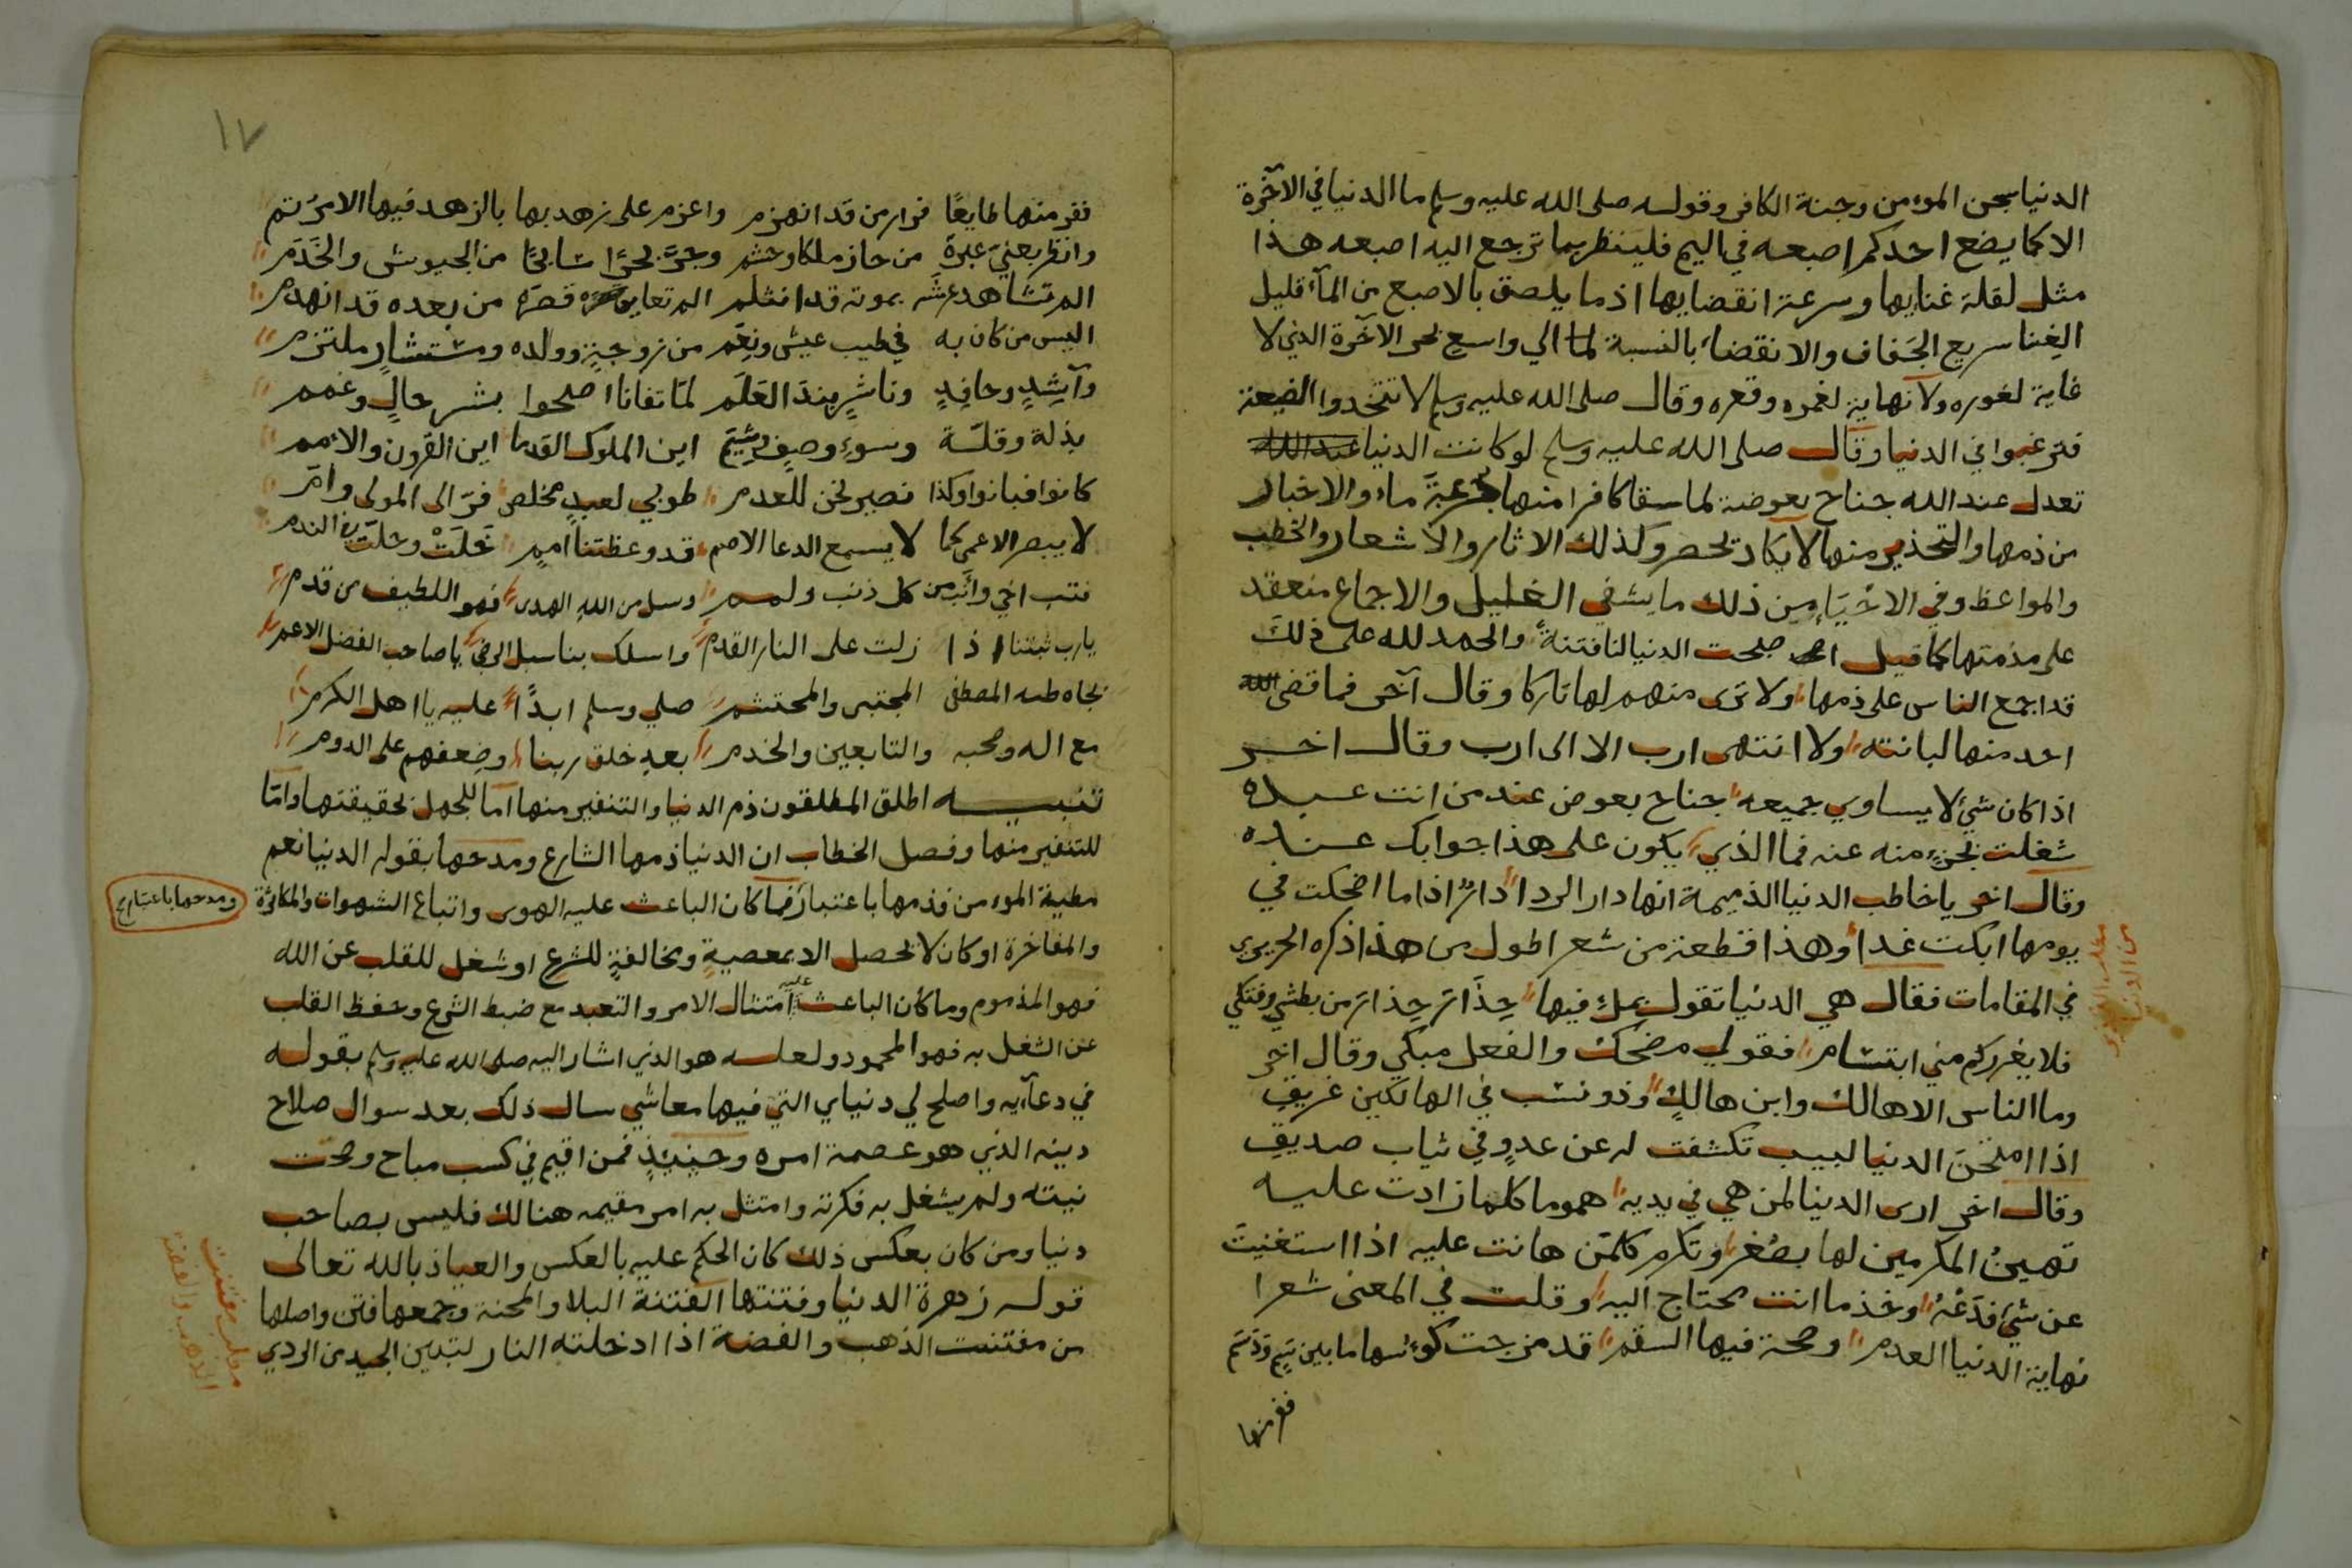 الدنيا سجن المومن وجنة الكافر وقوله صلى الله عليه وسلم ما الدنيا في الآخرة
الا كما يضع احدكم اصبعه في اليم فلينظر بما ترجع اليه اصبعه هذا
مثل لقلة غنايها وسرعة انقضايها اذ ما يلصق بالاصبع من المآء قليل
الغنا سريع الجفاف والانقضاء بالنسبة لما الي واسع بحر الآخرة الذي لا
غاية لغوره ولا نهاية لغمره وقعره وقال صلى الله عليه وسلم لا تتخدوا الضيعة
فترغبوا في الدنيا وقال صلى الله عليه وسلم لو كانت الدنيا عند الله
تعدل عند الله جناح بعوضة لما سقا كافرا منها جرعة ماء والاخبار
من ذمها والتحذير منها لا يكاد تحصر وكذلك الاثار والاشعار والخطب
والمواعظ وفي الاحياء من ذلك ما يشفي الغليل والاجماع منعقد
على مذمتها كما قيل اصلحت الدنيا لنا فتنة والحمد لله على ذلك
قد اجمع الناس على ذمها ولا ترى منهم لها تاركا وقال آخر فما قضى
احد منها لبانته ولا انتهى ارب الا الى ارب وقال اخر
اذا كان شيء لا يساوي جميعه جناح بعوض عند من انت عبده
شغلت بجزء منه عنه فما الذي يكون على هذا جوابك عنده
وقال اخر يا خاطب الدنيا الذميمة انها دار الردا دار اذا ما اضحكت في
يومها ابكت غدا وهذا قطعة من شعر اطول من هذا ذكره الحريري
في المقامات فقال هي الدنيا تقول بملء فيها حذار حذار من بطشي وفتكي
فلا يغرركم مني ابتسام فقولي مضحك والفعل مبكي وقال اخر
وما الناس الا هالك وابن هالك وذو نسب في الهالكين عريق
اذا امتحن الدنيا لبيب تكشفت له عن عدو في ثياب صديق
وقال اخر ارى الدنيا لمن هي في يديه هموما كلما زادت عليه
تهين المكرمين لها بصغر وتكرم كل من هانت عليه اذا استغنيت
عن شيء فدعه وخذ ما انت محتاج اليه وقلت في المعنى شعرا
نهاية الدنيا العدم وصحة فيها السقم قد مزجت كوءسها ما بين سم ودسم
ففر منها
١٧
ففر منها طايعا فرار من قد انهزم واعزم على زهد بها بالزهد فيها الامر تم
وانظر بعيني عبرة من حاز ملكا وحشم وجر بحرا سابحا من الجيوش والخدم
الم تشاهد عرشه بموته قد انثلم الم تعاين قصره من بعده قد انهدم
اليس من كان به في طيب عيش ونعم من زوجة وولده ومستشار ملتزم
وآشد وحافد وناشر بند العلم لما تفانا اصلحوا بشر حال وغمم
بذلة وقلة وسوء وصف وشيم اين الملوك القدما اين القرون والامم
كانوا فبانوا وكذا نصير نحن للعدم طوبي لعبد مخلص فر الى المولى وام
لا يبصر الاعمى كما لا يسمع الدعا الاصم قد وعظتنا امم خلت وحلت في الندم
فتب اخي وانب من كل ذنب ولمم وسل من الله الهدى فهو اللطيف من قدم
يا رب ثبتنا اذا زلت على النار القدم واسلك بنا سبل الرضى يا صاحب الفضل الاعم
بجاه طه المصطفى المجتبى والمحتشم صلي وسلم ابدا عليه يا اهل الكرم
مع اله وصحبه والتابعين والخدم بعد خلق ربنا وضعفهم على الدوم
تنبيه اطلق المطلقون ذم الدنيا والتنفير منها اما للجهل بحقيقتها واما
للتنفير منها وفصل الخطاب ان الدنيا ذمها الشارع ومدحها بقوله الدنيا نعم
مطية المومن فذمها باعتبار ما كان الباعث عليه الهوى واتباع الشهوات والمكاثرة
والمفاخرة او كان لا تحصل الا بمعصية ومخالفة للشرع او شغل للقلب عن الله
فهو المذموم وما كان الباعث عليه امتثال الامر والتعبد مع ضبط الشرع وحفظ القلب
عن الشغل به فهو المحمود ولعله هو الذي اشار اليه صلى الله عليه وسلم بقوله
في دعآيه واصلح لي دنياي التي فيها معاشي سال ذلك بعد سوال صلاح
دينه الذي هو عصمة امره وحينيذ فمن اقيم في كسب مباح وصحت
نيته ولم يشغل به فكرته وامتثل به امر مقيمه هنالك فليس بصاحب
دنيا ومن كان بعكس ذلك كان الحكم عليه بالعكس والعياذ بالله تعالى
قوله زهرة الدنيا وفتنتها الفتنة البلا والمحنة وجمعها فتن واصلها
من مفتنت الذهب والفضة اذا ادخلته النار لتبين الجيد من الردي
ومدحها باعتبار